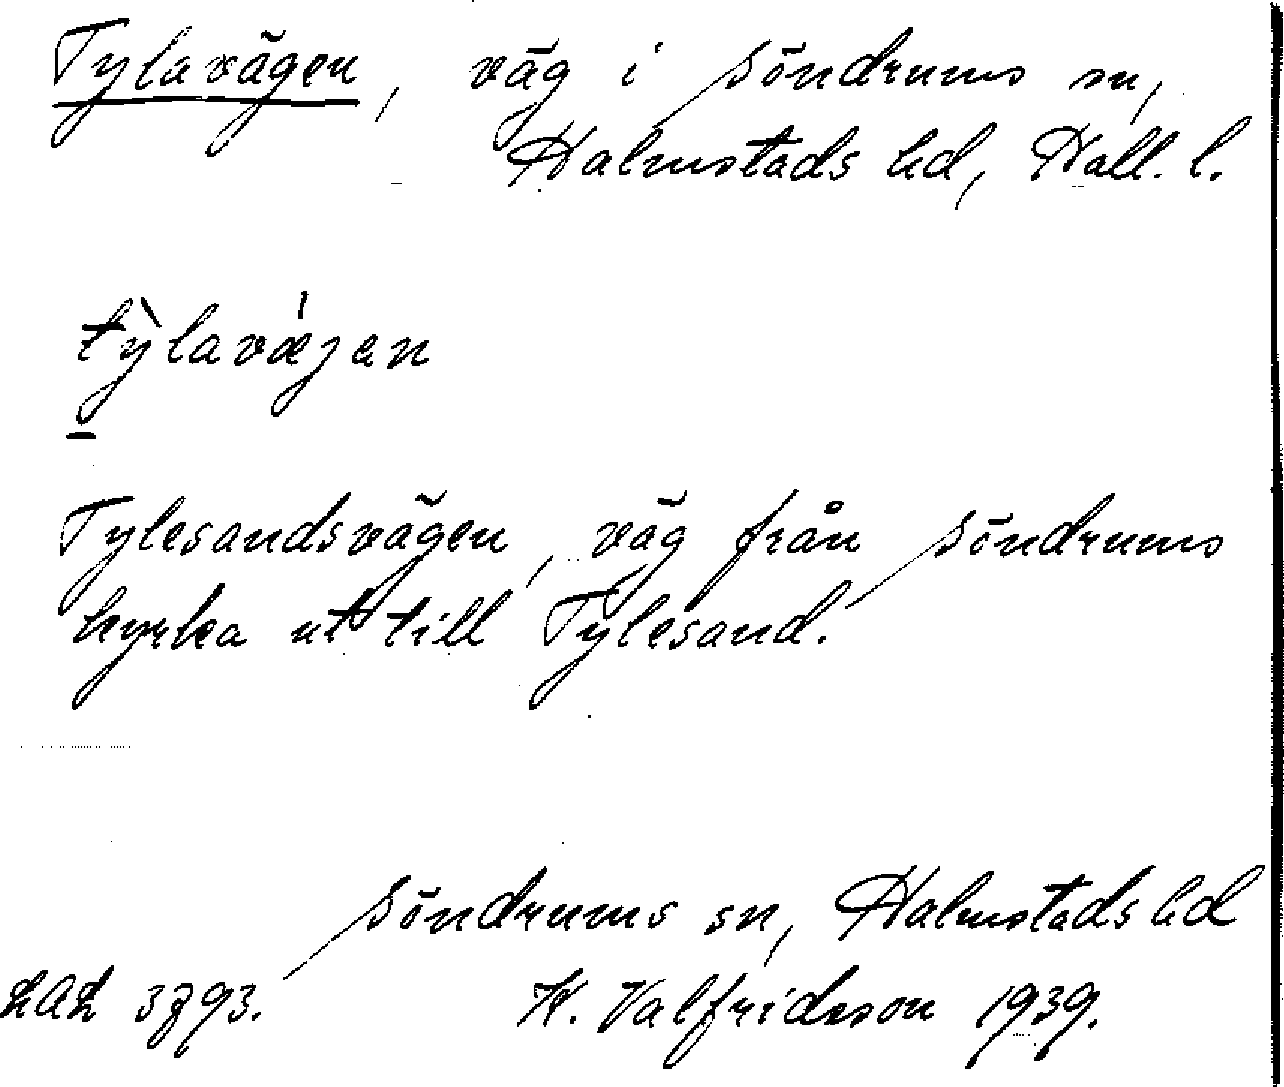 Tylavägen, väg i Söndrums sn,
Halmstads hd, Hall. l.
tỳlavǽjen
Tylesandsvägen, väg från Söndrums
kyrka ut till Tylesand.
Söndrums sn, Halmstads hd
LAL 3793. K. Valfridsson 1939.